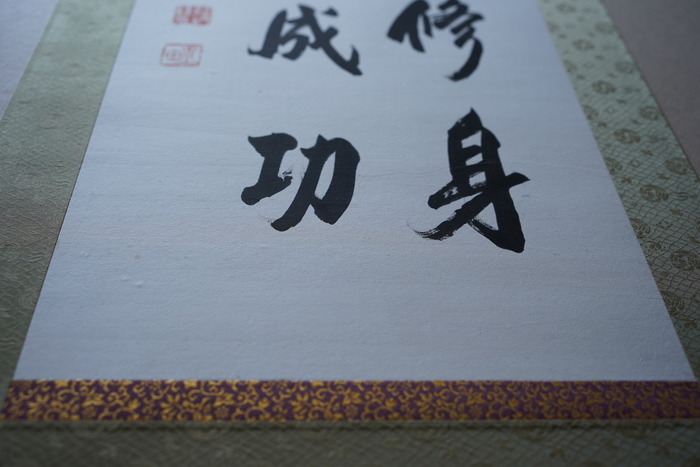 修身
成功